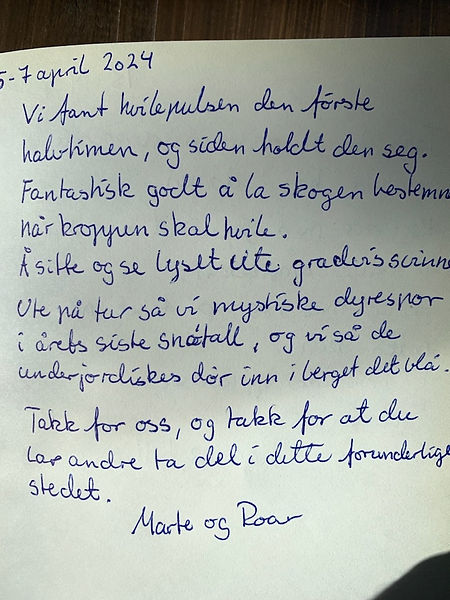 5-7 april 2024
Vi fant hvilepulsen den første
halvtimen, og siden holdt den seg.
Fantastisk godt å la skogen bestemme
når kroppen skal hvile.
Å sitte og se lyset ute gradvis svinne
Ute på tur så vi mystiske dyrespor
i årets siste snøfall, og vi så de
underjordiskes dør inn i berget det blå.
Takk for oss, og takk for at du
lar andre ta del i dette forunderlige
stedet.
Marte og Roar